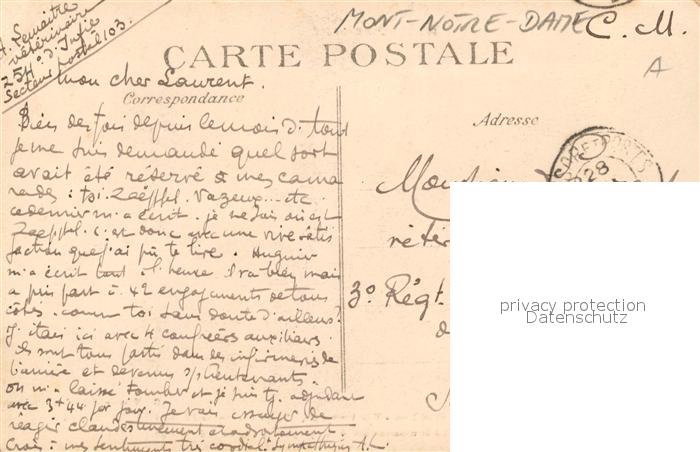 A. Lemaitre
vétérinaire
254° d'Infie
Secteur postal 103.
MONT-NOTRE-DAME
C. M.
A
CARTE POSTALE
mon cher Laurent.
Correspondance
Adresse
Bien des fois depuis le mois d'août
je me suis demandé quel sort
avait été réservé à mes cama
rades : toi. Zaepffel. Vazeux... etc.
ce dernier m'a écrit. je ne sais où est
Zaepffel. c'est donc avec une vive satis
faction que j'ai pu te lire. Huguier
m'a écrit tout à l'heure. Il va bien mais
a pris part à 42 engagements de tous
côtés. comme toi sans doute d'ailleurs?
J'étais ici avec 4 confrères auxiliaires.
ils sont tous partis dans des infirmeries de
l'arrière et devenus s/s lieutenants.
on m'a laissé tomber et je suis tj. adjudant
avec 3+44 par jour. Je vais essayer de
réagir clandestinement et adroitement.
Crois à mes sentiments très cordial. sympathiques A.L.
3° Régt
privacy protection
Datenschutz